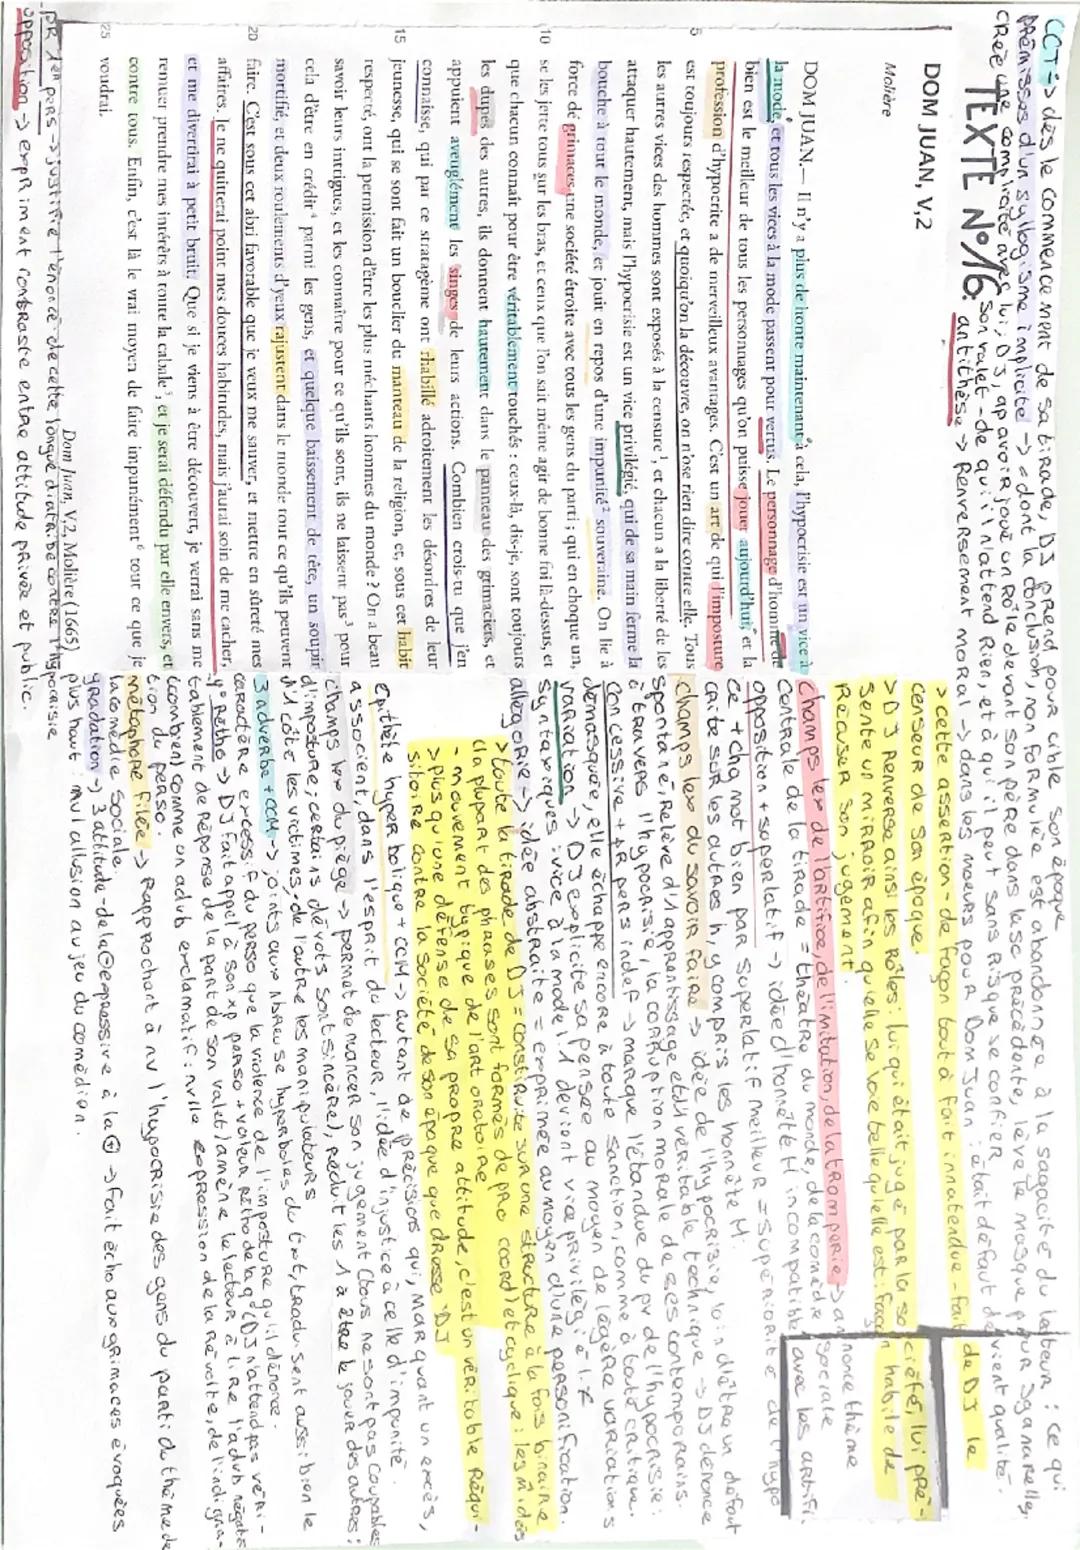 CCT => dès le commencement de sa tirade, DJ prend pour cible son époque
prémisses d'un syllogisme implicite -> dont la conclusion, non formulée est abandonnée à la sagacité du lecteur : ce qui
crée une complicité avec lui. DJ, ap avoir joué un rôle devant son père dans la sc précédente, lève le masque pour Sganarelle,
son valet - de qui il n'attend rien, et à qui il peut sans risque se confier
TEXTE N°16
antithèse -> Renversement moral -> dans les moeurs pour Dom Juan : était défaut devient qualité.
DOM JUAN, V,2
Molière
DOM JUAN.— Il n'y a plus de honte maintenant à cela, l'hypocrisie est un vice à
la mode, et tous les vices à la mode passent pour vertus. Le personnage d'homme de
bien est le meilleur de tous les personnages qu'on puisse jouer aujourd'hui, et la
profession d'hypocrite a de merveilleux avantages. C'est un art de qui l'imposture
5 est toujours respectée, et quoiqu'on la découvre, on n'ose rien dire contre elle. Tous
les autres vices des hommes sont exposés à la censure¹, et chacun a la liberté de les
attaquer hautement, mais l'hypocrisie est un vice privilégié, qui de sa main ferme la
bouche à tout le monde, et jouit en repos d'une impunité² souveraine. On lie à
force de grimaces une société étroite avec tous les gens du parti ; qui en choque un,
10 se les jette tous sur les bras, et ceux que l'on sait même agir de bonne foi là-dessus, et
que chacun connaît pour être véritablement touchés : ceux-là, dis-je, sont toujours
les dupes des autres, ils donnent hautement dans le panneau des grimaciers, et
appuient aveuglément les singes de leurs actions. Combien crois-tu que j'en
connaisse, qui par ce stratagème ont rhabillé adroitement les désordres de leur
15 jeunesse, qui se sont fait un bouclier du manteau de la religion, et, sous cet habit
respecté, ont la permission d'être les plus méchants hommes du monde ? On a beau
savoir leurs intrigues, et les connaître pour ce qu'ils sont, ils ne laissent pas³ pour
cela d'être en crédit⁴ parmi les gens, et quelque baissement de tête, un soupir
mortifié, et deux roulements d'yeux rajustent dans le monde tout ce qu'ils peuvent
20 faire. C'est sous cet abri favorable que je veux me sauver, et mettre en sûreté mes
affaires. Je ne quitterai point mes douces habitudes, mais j'aurai soin de me cacher,
et me divertirai à petit bruit. Que si je viens à être découvert, je verrai sans me
remuer prendre mes intérêts à toute la cabale⁵, et je serai défendu par elle envers, et
contre tous. Enfin, c'est là le vrai moyen de faire impunément⁶ tout ce que je
25 voudrai.
Dom Juan, V.2, Molière (1665)
PR 1ère pers -> justifie l'énoncé de cette longue diatribe contre l'hypocrisie
opposition -> expriment contraste entre attitude privée et public.
> cette assertion - de façon tout à fait innatendue - fait de DJ le
censeur de son époque.
> DJ renverse ainsi les rôles : lui qui était jugé par la société, lui pré-
sente un miroir afin qu'elle se voie telle qu'elle est : façon habile de
récuser son jugement.
Champs lex de l'artifice, de l'imitation, de la tromperie -> annonce thème
centrale de la tirade = théâtre du monde, de la comédie sociale
opposition + superlatif -> idée d'honnête H incompatible avec les artifi-
ce + chq mot bien par superlatif meilleur = supériorité de l'hypo
crite sur les autres h, y compris les honnête H.
champs lex du savoir faire -> idée de l'hypocrisie, loin d'être un défaut
spontané, relève d'1 apprentissage et d'1 véritable technique -> DJ dénonce
à travers l'hypocrisie, la corruption morale de ses contemporains.
Concessive + PR pers indef -> marque l'étendue du pv de l'hypocrisie :
démasquée, elle échappe encore à toute sanction, comme à toute critique.
variation -> DJ explicite sa pensée au moyen de légère variations
syntaxiques : vice à la mode l.1 devient vice privilégié l.7
allégorie -> idée abstraite = exprimée au moyen d'une personification.
> toute la tirade de DJ = construite sur une structure à la fois binaire
(la plupart des phrases sont formés de pro coord) et cyclique : les m idées
- mouvement typique de l'art oratoire
> plus qu'une défense de sa propre attitude, c'est un véritable réqui-
sitoire contre la société de son époque que dresse DJ
Epithète hyperbolique + CCM -> autant de précisions qui, marquant un excès,
associent, dans l'esprit du lecteur, l'idée d'injustice à celle d'impunité.
champs lex du piège -> permet de nuancer son jugement (tous ne sont pas coupables
d'imposture ; certains dévots sont sincère), réduit les 1 à être le jouer des autres :
d'1 côté les victimes, de l'autre les manipulateurs
3 adverbe + CCM -> joints aux nbreuse hyperboles du txt, traduisent aussi bien le
caractère excessif du perso que la violence de l'imposture qu'il dénonce.
q° Rétho -> DJ fait appel à son xp perso + valeur réthode la q° (DJ n'attend pas véri-
tablement de réponse de la part de son valet) amène le lecteur à lire l'advb négatif
(combien) comme un advb exclamatif : nvlle expression de la révolte, de l'indigna-
tion du perso.
métaphore filée -> Rapprochant à nv l'hypocrisie des gens du parti du thème de
la comédie sociale.
gradation -> 3 attitude - de la ⊖ expressive à la ⊕ -> fait écho aux grimaces évoquées
plus haut : nvl allusion au jeu du comédien.